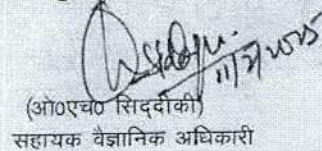 11/7/2025
(ओ०एच० सिद्दीकी)
सहायक वैज्ञानिक अधिकारी